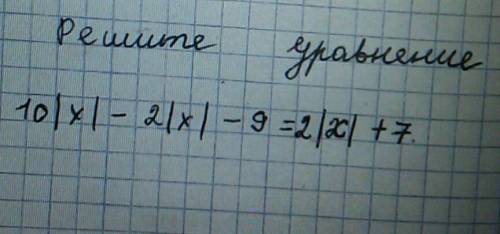 Решите уравнение
10|x| - 2|x| - 9 = 2|x| + 7.